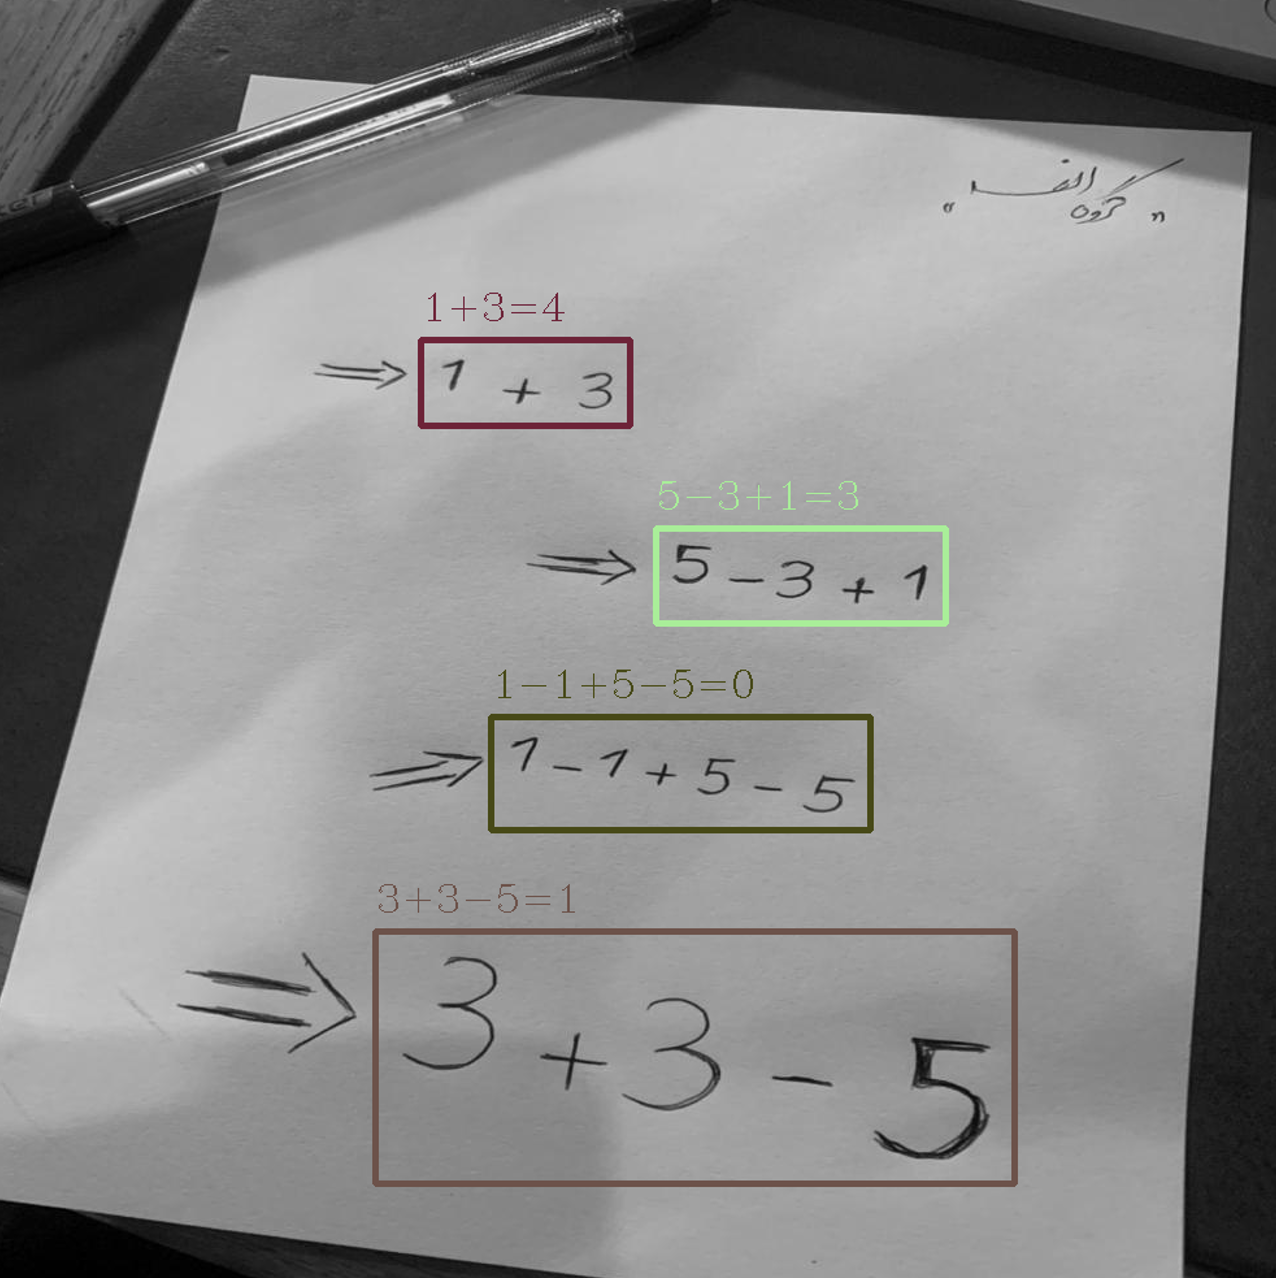 " گروه الف "
1+3=4
⇒ 1 + 3
5-3+1=3
⇒ 5 - 3 + 1
1-1+5-5=0
⇒ 1 - 1 + 5 - 5
3+3-5=1
⇒ 3 + 3 - 5